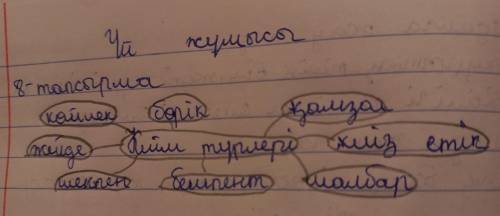 Үй жумысы
8-тапсырма
көйлек бөрік қамзол
жейде Киім түрлері киіз етік
шекпен бешпент шалбар